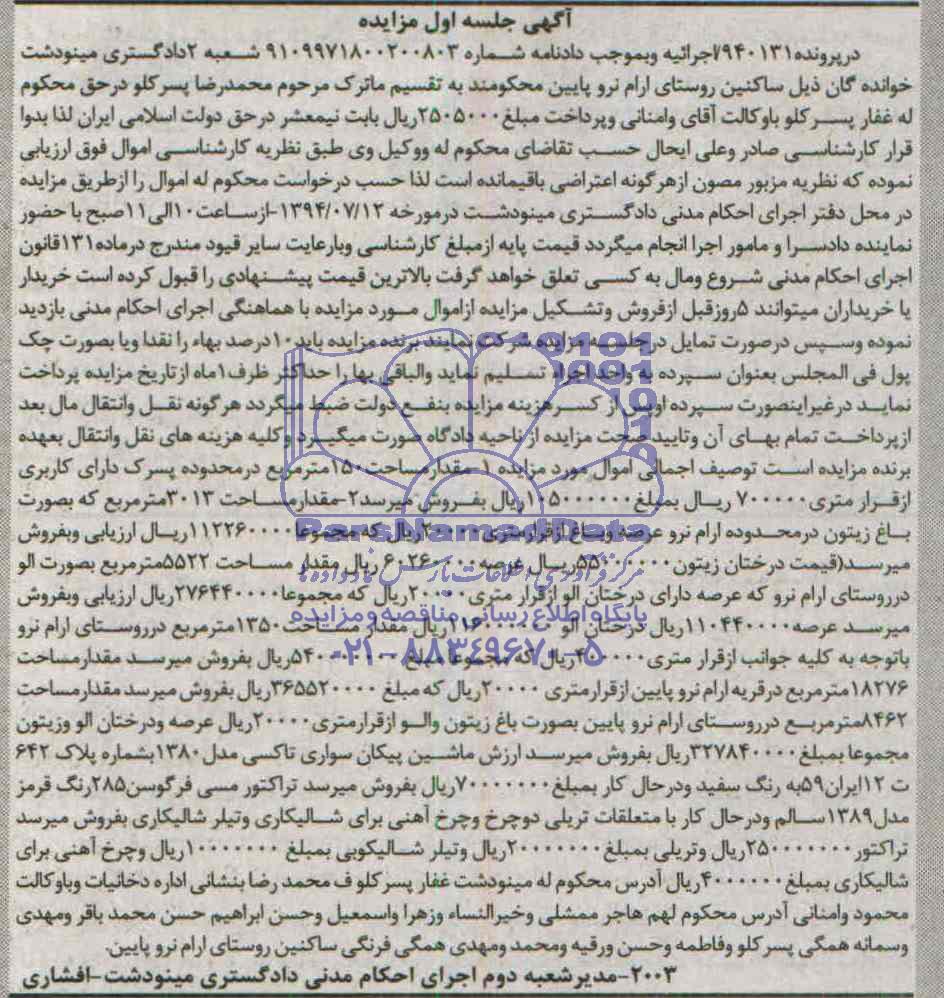 آگهی جلسه اول مزایده
درپرونده۹۴۰۱۳۱/اجرائیه وبموجب دادنامه شماره ۹۱۰۹۹۷۱۸۰۰۲۰۰۸۰۳ شعبه ۲دادگستری مینودشت
خوانده گان ذیل ساکنین روستای ارام نرو پایین محکومند به تقسیم ماترک مرحوم محمدرضا پسرکلو درحق محکوم
له غفار پسرکلو باوکالت آقای وامنانی وپرداخت مبلغ۲۵۰۵۰۰۰ریال بابت نیمعشر درحق دولت اسلامی ایران لذا بدوا
قرار کارشناسی صادر وعلی ایحال حسب تقاضای محکوم له ووکیل وی طبق نظریه کارشناسی اموال فوق ارزیابی
نموده که نظریه مزبور مصون ازهرگونه اعتراضی باقیمانده است لذا حسب درخواست محکوم له اموال را ازطریق مزایده
در محل دفتر اجرای احکام مدنی دادگستری مینودشت درمورخه ۱۳۹۴/۰۷/۱۲-ازساعت۱۰الی۱۱صبح با حضور
نماینده دادسرا و مامور اجرا انجام میگردد قیمت پایه ازمبلغ کارشناسی وبارعایت سایر قیود مندرج درماده۱۳۱قانون
اجرای احکام مدنی شروع ومال به کسی تعلق خواهد گرفت بالاترین قیمت پیشنهادی را قبول کرده است خریدار
یا خریداران میتوانند ۵روزقبل ازفروش وتشکیل مزایده ازاموال مورد مزایده با هماهنگی اجرای احکام مدنی بازدید
نموده وسپس درصورت تمایل درجلسه مزایده شرکت نمایند برنده مزایده باید۱۰درصد بهاء را نقدا ویا بصورت چک
پول فی المجلس بعنوان سپرده به واحد اجراء تسلیم نماید والباقی بها را حداکثر ظرف۱ماه ازتاریخ مزایده پرداخت
نماید درغیراینصورت سپرده اوپس از کسرهزینه مزایده بنفع دولت ضبط میگردد هرگونه نقل وانتقال مال بعد
ازپرداخت تمام بهای آن وتایید صحت مزایده از ناحیه دادگاه صورت میگیرد وکلیه هزینه های نقل وانتقال بعهده
برنده مزایده است توصیف اجمالی اموال مورد مزایده ۱-مقدارمساحت۱۵۰مترمربع درمحدوده پسرک دارای کاربری
ازقرار متری۷۰۰۰۰۰ ریال بمبلغ۱۰۵۰۰۰۰۰۰ریال بفروش میرسد۲-مقدارمساحت ۳۰۱۳مترمربع که بصورت
باغ زیتون درمحدوده ارام نرو عرصه وباغ ازقرارمتری۲۰۰۰۰ریال که مجموعا۱۱۲۲۶۰۰۰۰ریال ارزیابی وبفروش
میرسد(قیمت درختان زیتون۵۵۰۰۰۰۰۰ریال عرصه۶۰۲۶۰۰۰۰ ریال ومقدار مساحت ۵۵۲۲مترمربع بصورت الو
درروستای ارام نرو که عرصه دارای درختان الو ازقرار متری۲۰۰۰۰ریال که مجموعا۲۷۶۴۴۰۰۰۰ریال ارزیابی وبفروش
میرسد عرصه۱۱۰۴۴۰۰۰۰ریال درختان الو ریال مقدار مساحت۱۳۵۰مترمربع درروستای ارام نرو
باتوجه به کلیه جوانب ازقرار متری۴۰۰۰۰۰ریال که مجموعا مبلغ ۵۴۰۰۰۰۰۰۰ریال بفروش میرسد مقدارمساحت
۱۸۲۷۶مترمربع درقریه ارام نرو پایین ازقرارمتری ۲۰۰۰۰ریال که مبلغ ۳۶۵۵۲۰۰۰۰ریال بفروش میرسد مقدارمساحت
۸۴۶۲مترمربع درروستای ارام نرو پایین بصورت باغ زیتون والو ازقرارمتری۲۰۰۰۰ریال عرصه ودرختان الو وزیتون
مجموعا بمبلغ۳۲۷۸۴۰۰۰۰ریال بفروش میرسد ارزش ماشین پیکان سواری تاکسی مدل۱۳۸۰بشماره پلاک ۶۴۲
ت ۱۲ایران۵۹به رنگ سفید ودرحال کار بمبلغ۷۰۰۰۰۰۰۰ریال بفروش میرسد تراکتور مسی فرگوسن۲۸۵رنگ قرمز
مدل۱۳۸۹سالم ودرحال کار با متعلقات تریلی دوچرخ وچرخ آهنی برای شالیکاری وتیلر شالیکاری بفروش میرسد
تراکتور۲۵۰۰۰۰۰۰۰ریال وتریلی بمبلغ۲۰۰۰۰۰۰۰ریال وتیلر شالیکوبی بمبلغ ۱۰۰۰۰۰۰۰ریال وچرخ آهنی برای
شالیکاری بمبلغ۴۰۰۰۰۰۰ریال آدرس محکوم له مینودشت غفار پسرکلو ف محمد رضا بنشانی اداره دخانیات وباوکالت
محمود وامنانی آدرس محکوم لهم هاجر ممشلی وخیرالنساء وزهرا واسمعیل وحسن ابراهیم حسن محمد باقر ومهدی
وسمانه همگی پسرکلو وفاطمه وحسن ورقیه ومحمد ومهدی همگی فرنگی ساکنین روستای ارام نرو پایین.
۲۰۰۳-مدیرشعبه دوم اجرای احکام مدنی دادگستری مینودشت-افشاری
ParsNamadData
مرکز فرآوری اطلاعات پارس نماد داده ها
پایگاه اطلاع رسانی مناقصه و مزایده
۰۲۱-۸۸۳۴۹۶۷۰-۵